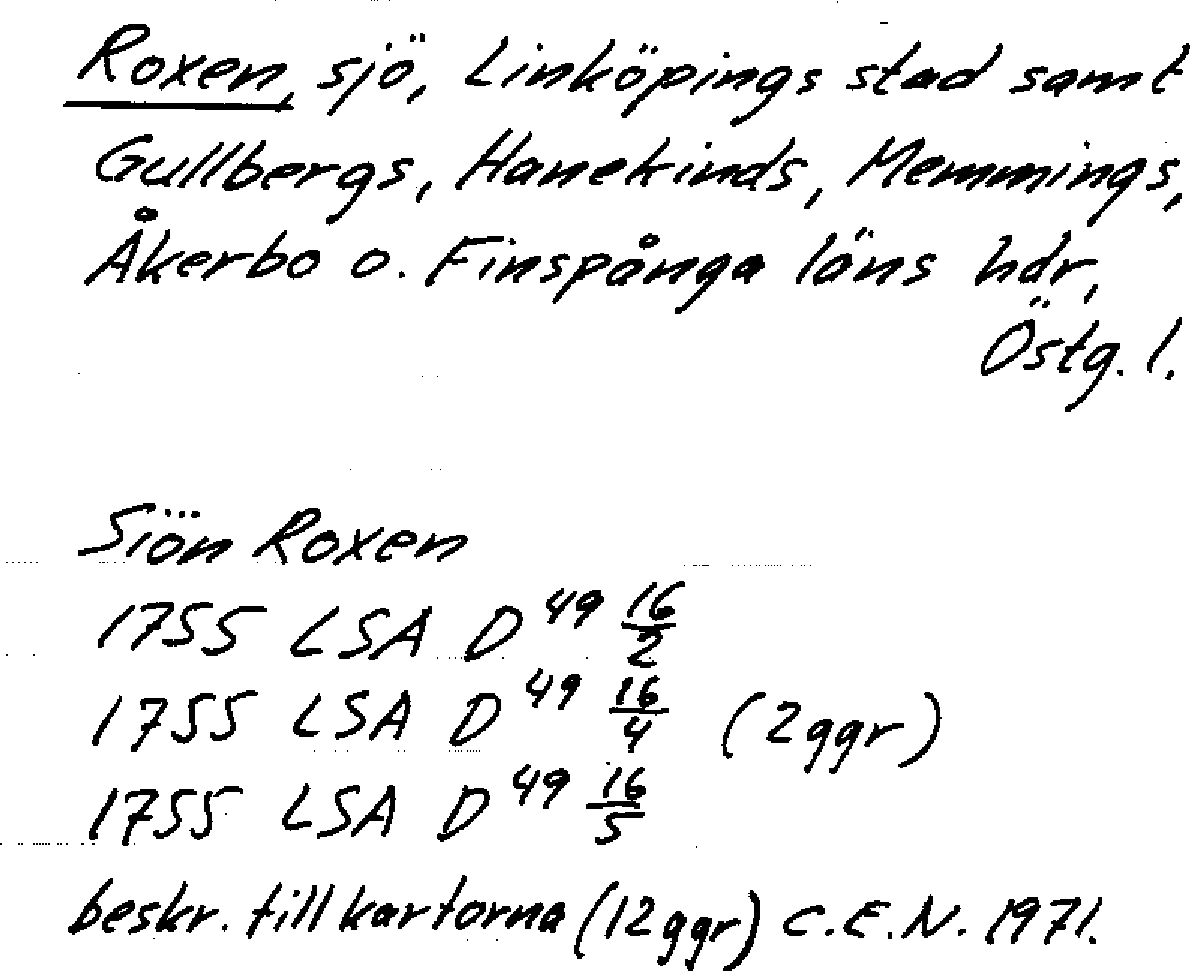 Roxen, sjö, Linköpings stad samt
Gullbergs, Hanekinds, Memmings,
Åkerbo o. Finspånga läns hdr,
Östg. l.
Siön Roxen
1755 LSA D 49 16/2
1755 LSA D 49 16/4 (2ggr)
1755 LSA D 49 16/5
beskr. till kartorna (12ggr) C.E.N. 1971.